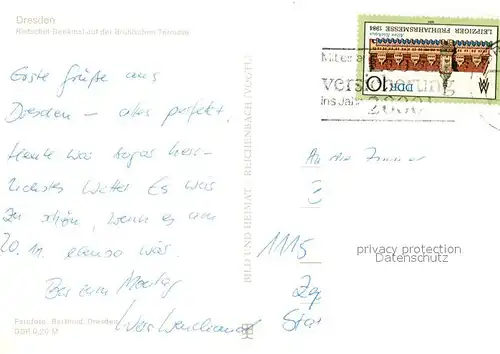 Dresden
Rietschel-Denkmal auf der Brühlschen Terrasse
Erste Grüße aus
Dresden – alles perfekt.
Heute war sogar herr-
lichstes Wetter Es war
zu schön, wenn es am
20. 11. ebenso wär.
Bis zum Montag
Panfoto, Bertinod, Dresden
DDR 0,20 M
BILD UND HEIMAT REICHENBACH (VOGTL)
LEIPZIGER FRÜHJAHRSMESSE 1984
Altes Rathaus
DDR 10
Mit
versicherung
ins Jahr
2000!
An die Zimmer
1115
privacy protection
Datenschutz